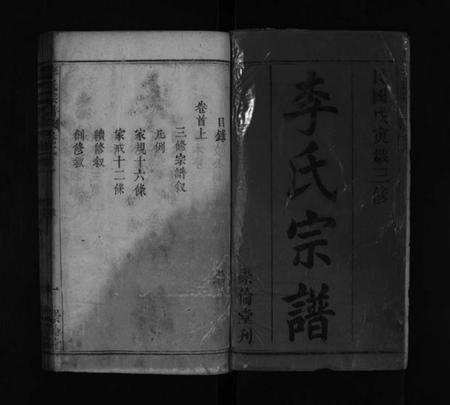 民國戊寅歲三修
李氏宗譜
崇倫堂刊
目錄
卷首上
三修宗譜叙
凡例
家規十六條
家戒十二條
續修叙
創修叙